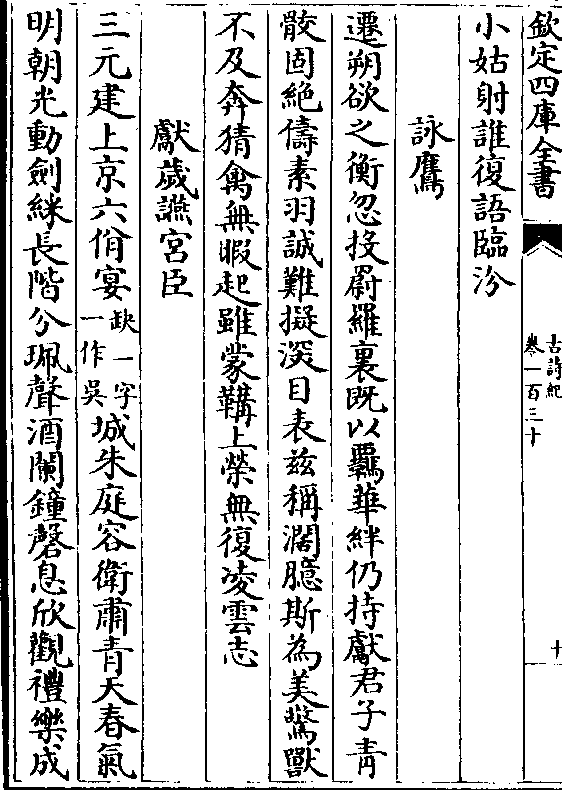 欽定四庫全書
古詩紀
卷一百三十
十
小姑射誰復語臨汾
詠鷹
遷朔欲之衡忽投罻羅裏既以羈華絆仍持獻君子青
骹固絶儔素羽誠難擬深目表兹稱濶臆斯為美驚獸
不及奔猜禽無暇起雖蒙鞲上榮無復凌雲志
獻歲讌宮臣
三元建上京六佾宴缺一字一作吳城朱庭容衛肅青天春氣
明朝光動劍綵長階分珮聲酒闌鐘磬息欣觀禮樂成